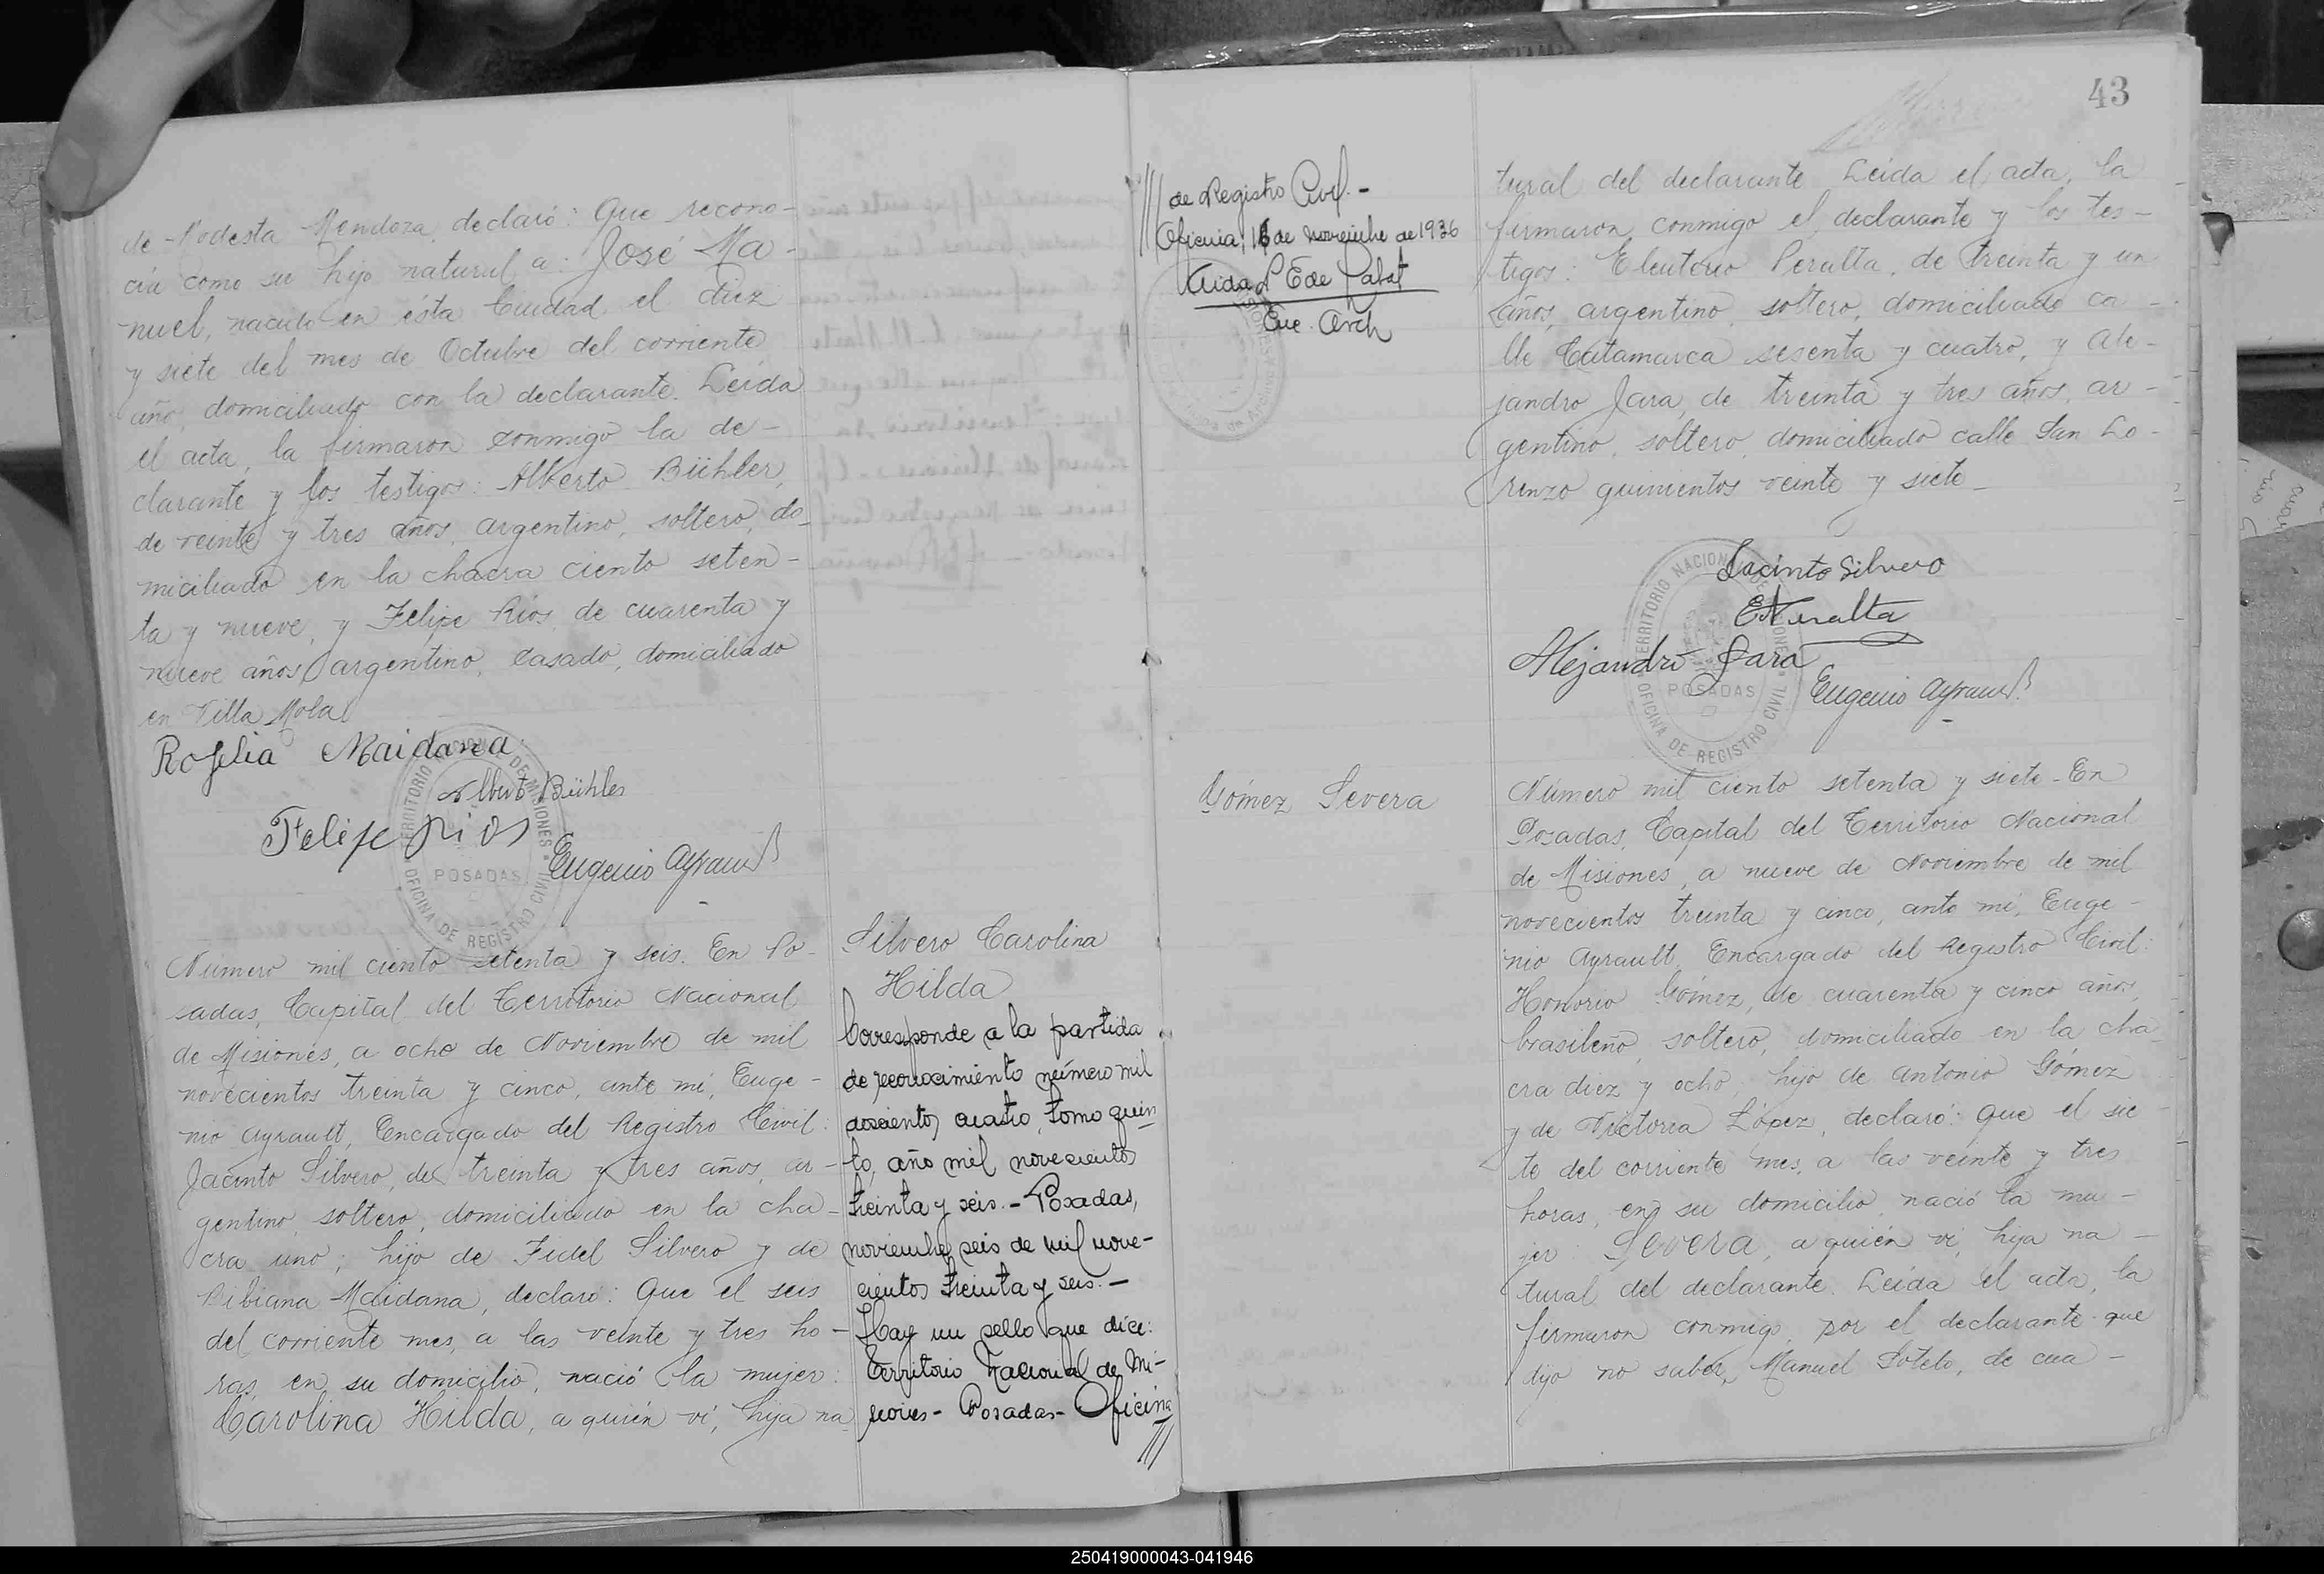 de Modesta Mendoza, declaró: Que recono-
cía como su hijo natural a: José Ma-
nuel, nacido en ésta Ciudad el diez
y siete del mes de Octubre del corriente
año, domiciliado con la declarante. Leída
el acta, la firmaron conmigo la de-
clarante y los testigos: Alberto Bühler,
de veinte y tres años, argentino, soltero, do-
miciliado en la chacra ciento seten-
ta y nueve, y Felipe Ríos, de cuarenta y
nueve años, argentino, casado, domiciliado
en Villa Mola
Rogelia Maidana
Albert Bühler
Felipe Rios
Eugenio Ayrault
TERRITORIO NACIONAL DE MISIONES
POSADAS
OFICINA DE REGISTRO CIVIL
Número mil ciento setenta y seis. En Po-
sadas, Capital del Territorio Nacional
de Misiones, a ocho de Noviembre de mil
novecientos treinta y cinco, ante mí, Euge-
nio Ayrault, Encargado del Registro Civil:
Jacinto Silvero, de treinta y tres años, ar-
gentino, soltero, domiciliado en la cha-
cra uno; hijo de Fidel Silvero y de
Bibiana Maidana, declaró: Que el seis
del corriente mes, a las veinte y tres ho-
ras, en su domicilio, nació la mujer:
Carolina Hilda, a quién ví, hija na
Silvero Carolina
Hilda
Corresponde a la partida
de reconocimiento número mil
doscientos cuatro, tomo quin
to, año mil novecientos
treinta y seis.- Posadas,
noviembre seis de mil nove-
cientos treinta y seis.-
Hay un sello que dice:
Territorio Nacional de Mi-
siones - Posadas - Oficina
///
43
/// de Registro Civil.-
Oficina, 16 de noviembre de 1936
Aida P E de Pabat
Enc. Arch
tural del declarante Leída el acta, la
firmaron conmigo el declarante y los tes-
tigos: Eleuterio Peralta, de treinta y un
años, argentino, soltero, domiciliado ca-
lle Catamarca sesenta y cuatro, y Ale-
jandro Jara, de treinta y tres años, ar-
gentino, soltero, domiciliado calle San Lo-
renzo quinientos veinte y siete
Jacinto Silvero
E Peralta
Alejandro Jara
Eugenio Ayrault
TERRITORIO NACIONAL DE MISIONES
POSADAS
OFICINA DE REGISTRO CIVIL
Gómez Severa
Número mil ciento setenta y siete - En
Posadas, Capital del Territorio Nacional
de Misiones, a nueve de Noviembre de mil
novecientos treinta y cinco, ante mí, Euge-
nio Ayrault, Encargado del Registro Civil:
Honorio Gómez, de cuarenta y cinco años,
brasileño, soltero, domiciliado en la cha
cra diez y ocho, hijo de Antonio Gómez
y de Victoria López, declaró: Que el sie
te del corriente mes, a las veinte y tres
horas, en su domicilio nació la mu-
jer: Severa, a quién ví, hija na-
tural del declarante. Leída el acta, la
firmaron conmigo, por el declarante que
dijo no saber, Manuel Sotelo, de cua-
250419000043-041946